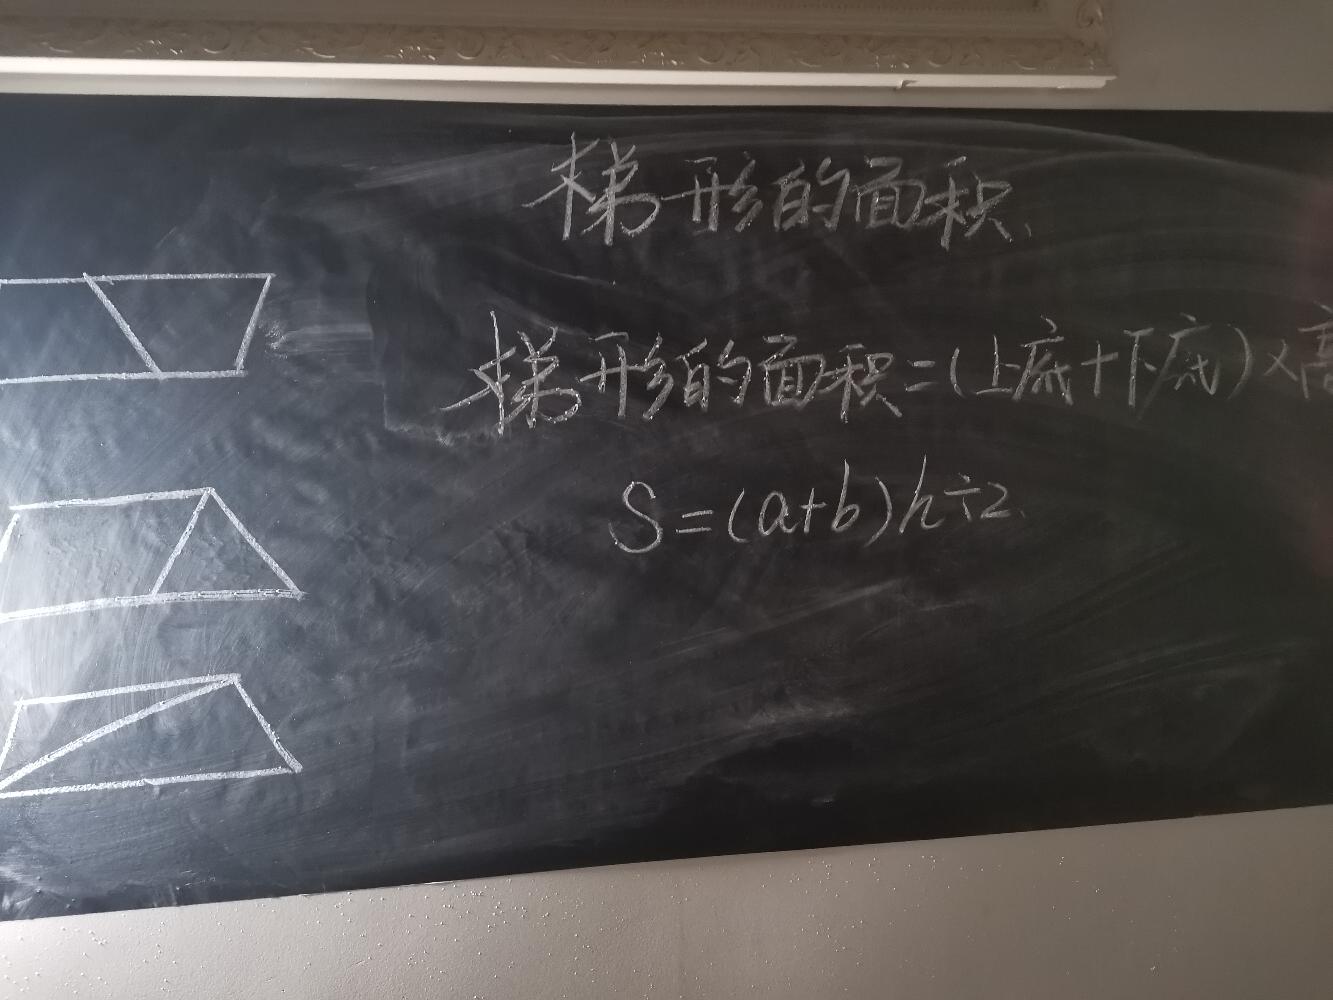 梯形的面积.
梯形的面积=(上底+下底)×高
S=(a+b)h÷2.